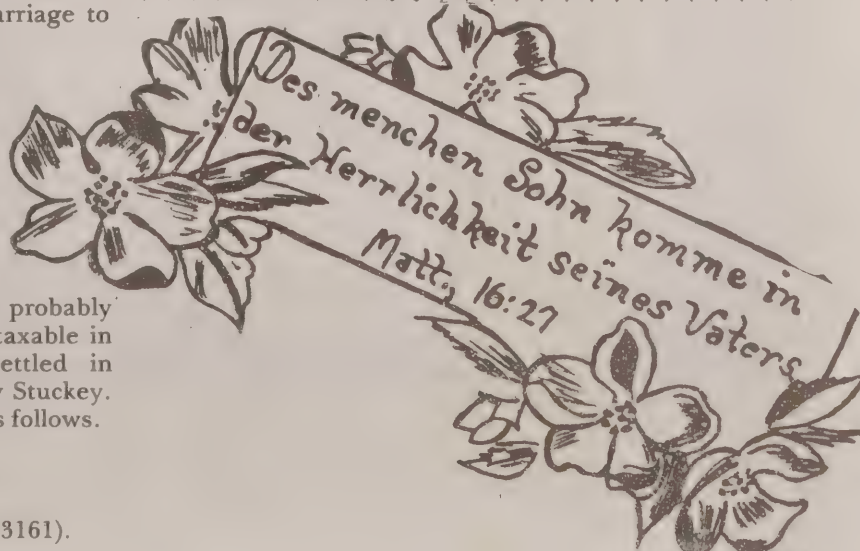 rriage to
Des menchen Sohn komme in
der Herrlichkeit seines Vaters
Matt, 16:27
probably
taxable in
ettled in
Stuckey.
s follows.
3161).